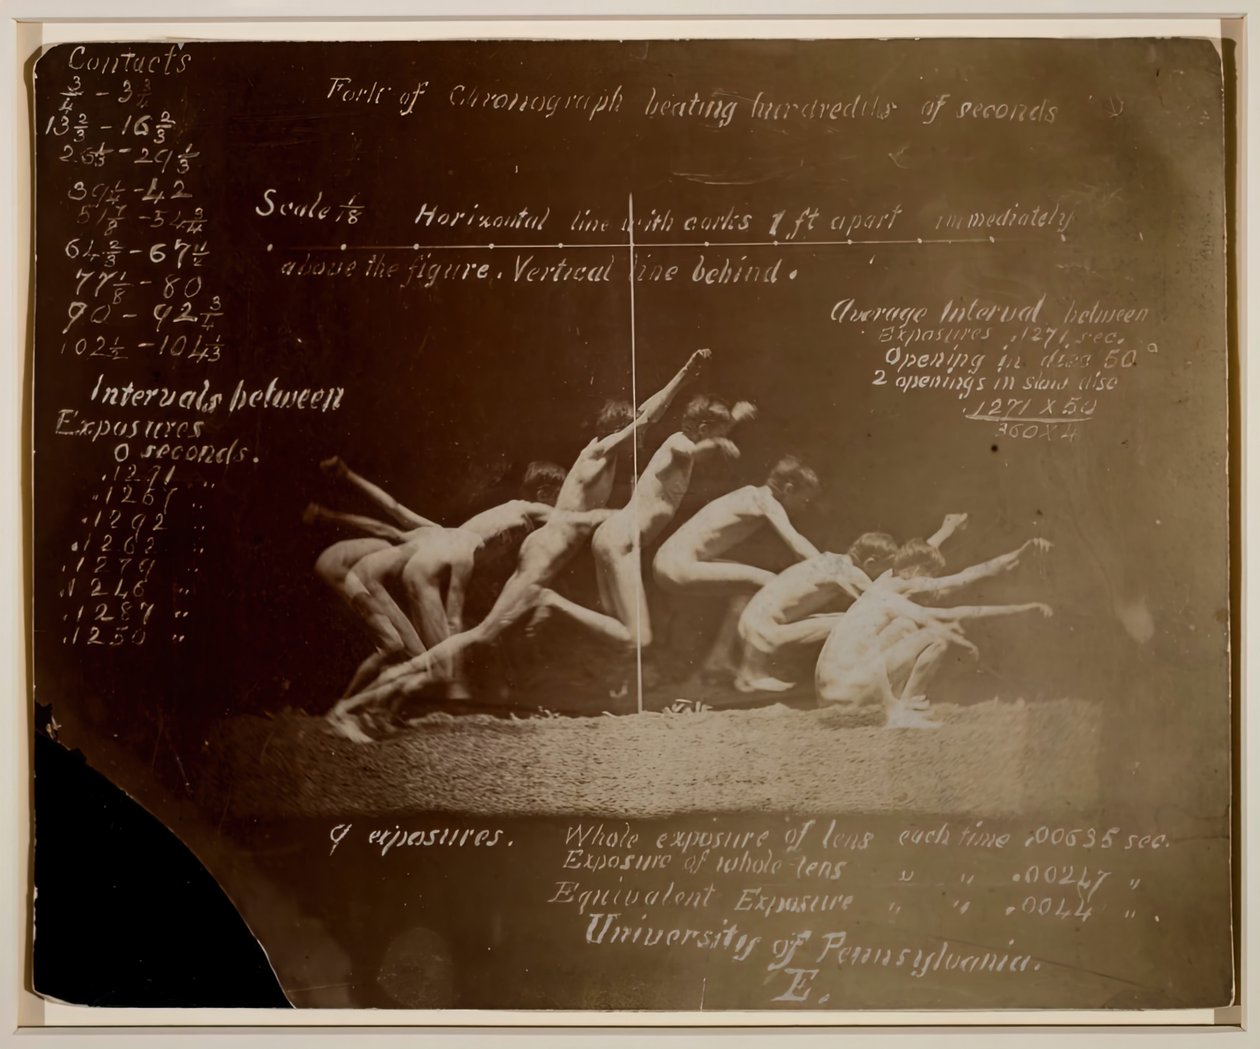 Contacts
3/4 - 3 3/4
13 2/3 - 16 2/3
26 1/3 - 29 1/3
39 1/4 - 42
51 7/8 - 54 3/4
64 2/3 - 67 1/2
77 1/8 - 80
90 - 92 3/4
102 1/2 - 104 1/3
Intervals between
Exposures
0 seconds.
.1271 "
.1267 "
.1292 "
.1262 "
.1279 "
.1246 "
.1287 "
.1250 "
Fork of Chronograph beating hundredths of seconds
Scale 1/8 Horizontal line with corks 1 ft apart immediately
above the figure. Vertical line behind.
Average Interval between
Exposures .1271 sec.
Opening in disc 50°
2 openings in slow disc
1271 x 50
360 x 4
9 exposures.
Whole exposure of lens each time .00635 sec.
Exposure of whole lens " " .00247 "
Equivalent Exposure " " .0044 " .
University of Pennsylvania.
E.